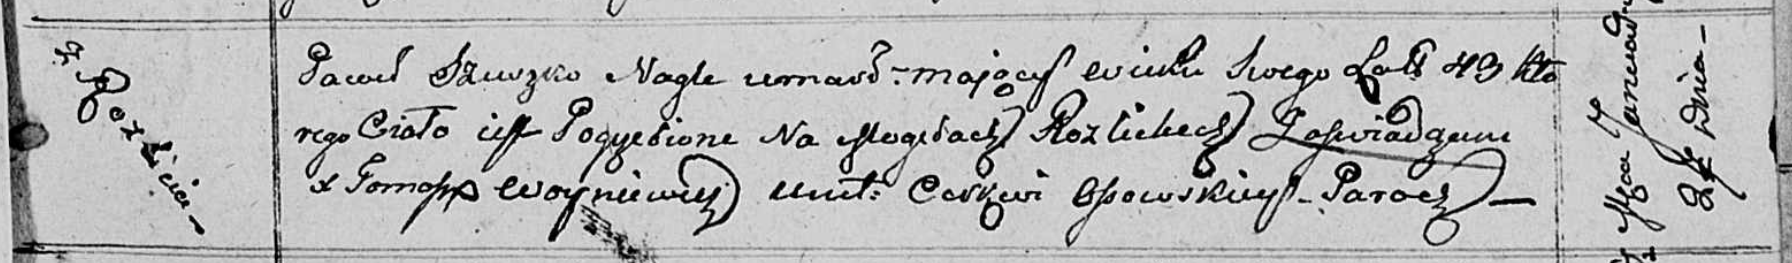 z Rozlicia –
Paweł Szuszko Nagle umarł – mający wieku Swego Lat 43 któ
rego Ciało iest Pogrzebione Na Mogiłach Rozlickich Zaświadczam
x Tomasz Woyniewicz Unit: Cerkwi Osowskiey – Paroch –
Mca Januar
Dnia –